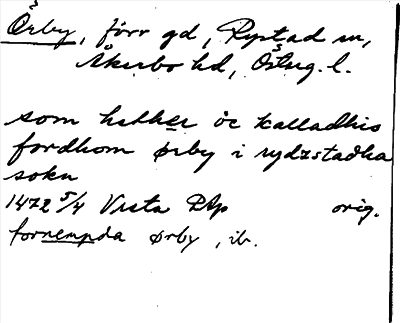 Örby, förr gd, Rystad sn,
Åkerbo hd, Östug. l.
som hether oc kalladhis
fordhom ørby i rydzstadha
sokn
1472 5/4 Vreta Dip orig.
fornempda ørby, ib.